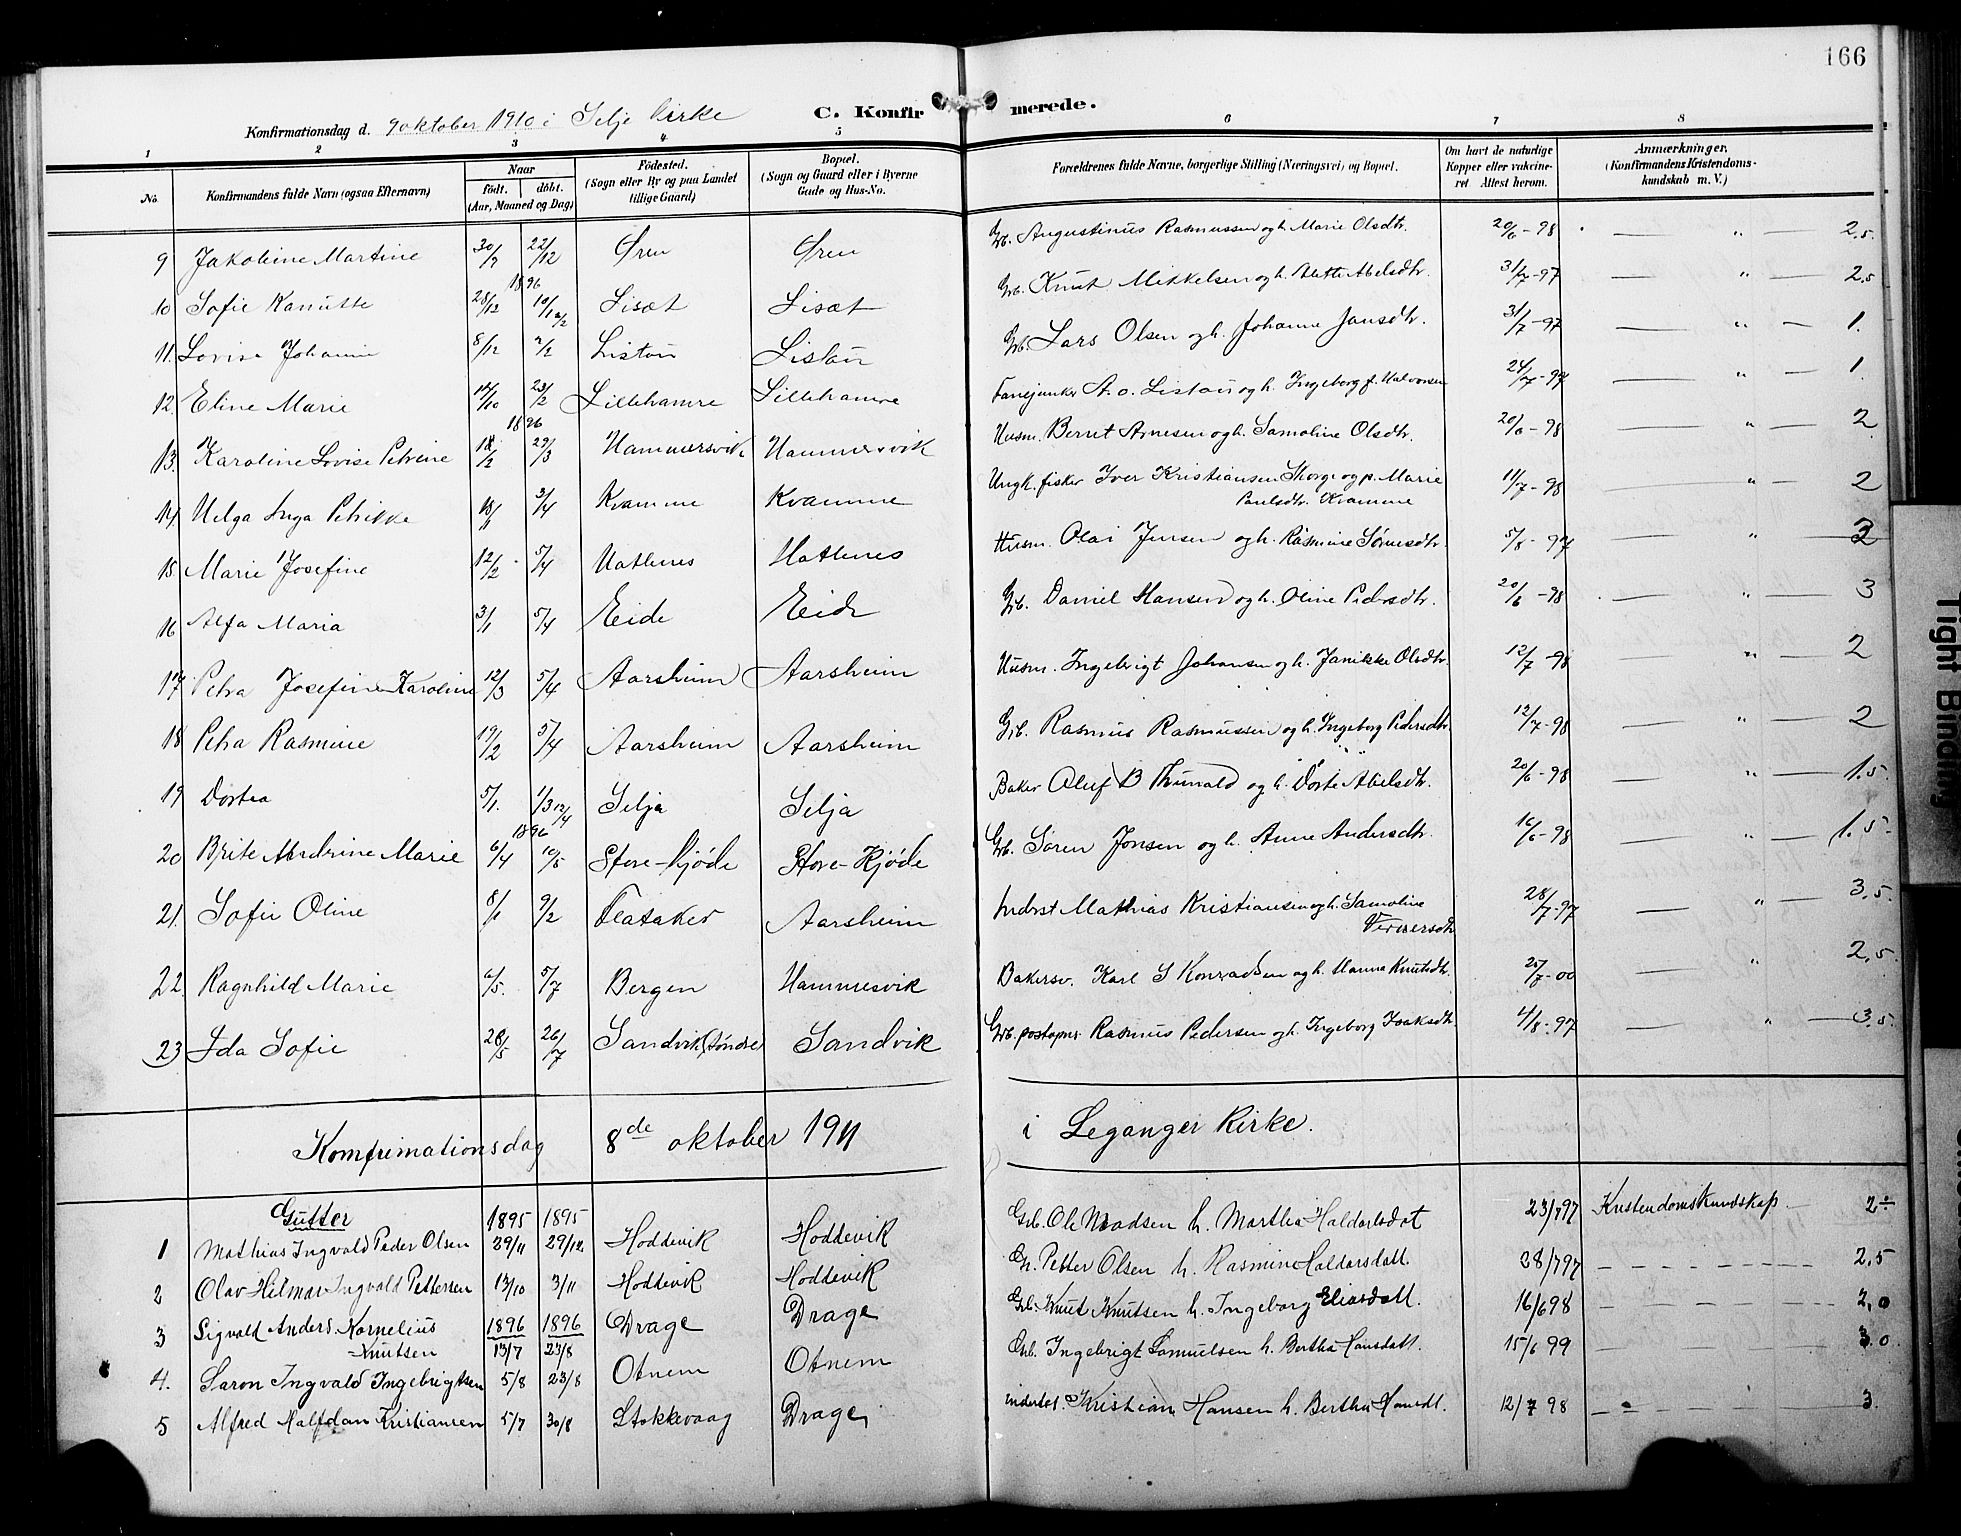 166
Konfirmationsdag d. 9 oktober 1910 i Selje Kirke C. Konfirmerede.
1 2 3 4 5 6 7 8
No. Konfirmandens fulde Navn (ogsaa Efternavn) Naar födt. döbt. (Aar, Maaned og Dag) Födested. (Sogn eller By og paa Landet tillige Gaard) Bopæl. (Sogn og Gaard eller i Byerne Gade og Hus-No. Forældrenes fulde Navne, borgerlige Stilling (Næringsvei) og Bopæl. Om havt de naturlige Kopper eller vakcineret Attest herom. Anmærkninger, (Konfirmandens Kristendomskundskab m. V.)
9 Jakobine Martine 30/9 22/12 Øren Øren Grb. Augustinus Rasmussen og h. Marie Olsdtr. 20/6-98 — " — 2,5.
1896
10 Sofie Kanutte 28/12 10/1 2/2 Lisæt Lisæt Grb. Knut Mikkelsen og h. Anette Abelsdtr. 31/7-97 — " — 2,5
11. Lovise Johanne 8/12 2/2 Listou Listou Grb. Lars Olsen og h. Johanne Jansdtr. 31/7-97 — " — 1.
12. Eline Marie 14/10 23/2 Lillehamre Lillehamre Fanejunker A. O. Listou og h. Ingeborg f. Halvorsen 24/7-97 — " — 1.
1896
13. Karoline Lovise Petrine 18/2 29/3 Hammersvik Hammersvik Husm. Bernt Arnesen og h. Samoline Olsdtr. 20/6-98 — " — 2
14. Helga Inga Petrikke 18/11 3/4 Kvamme Kvamme Ungk. fisker Iver Kristiansen Skorge og p. Marie Paulsdtr. Kvamme 11/7-98 — " — 2
15. Marie Josefine 12/2 5/4 Hatlenes Hatlenes Husm. Olai Jensen og h. Rasmine Sörensdtr. 5/8-97 — " — 2
16 Alfa Maria 3/1 5/4 Eide Eide Grb. Daniel Hansen og h. Oline Pedersdtr. 20/6-98 — " — 3
17 Petra Josefine Karoline 12/3 5/4 Aarsheim Aarsheim Husm. Ingebrigt Johansen og h. Janikke Olsdtr. 12/7-98 — " — 2
18 Petra Rasmine 19/2 5/4 Aarsheim Aarsheim Grb. Rasmus Rasmussen og h. Ingeborg Pedersdtr. 12/7-98 — " — 2
19 Dortea 5/1. 1/3 12/4 Selja Selja Baker Oluf B Thunald og h. Dorte Abelsdtr. 20/6-98 — " — 1.5.
1896
20 Brite Andrine Marie 6/4 10/5 Store-Hjøde Store-Hjøde Grb. Sören Jonsen og h. Anne Andersdtr. 16/6-98 — " — 1.5
21. Sofie Oline 8/1 9/2 Flataker Aarsheim Inderst Mathias Kristiansen og h. Samoline Vernersdtr 28/7-97 — " — 3,5
22. Ragnhild Marie 6/5. 5/7 Bergen Hammesvik Bakersv. Karl S Konradsen og h. Hanna Knutsdtr. 25/7-00 — " — 2,5
23 Ida Sofie 28/5 26/7 Sandvik (Söndre Sandvik Grb. postopner Rasmus Pedersen og h. Ingeborg Isaksdtr. 4/8-97 — " — 3,5
Komfirmationsdag 8de oktober 1911 i Leganger Kirke.
Gutter 1895 1895
1 Mathias Ingvald Peder Olsen 29/11 29/12. Hoddevik Hoddevik Grb. Ole Madsen h. Martha Haldorsdat 23/7 97 Kristendomskundskap — 2÷
2 Olav Hilmar Ingvald Pettersen 13/10 3/11 Hoddevik Hoddevik Gr. Petter Olsen h. Rasmine Haldorsdatt. 28/7 97 — 2,5
3 Sigvald Anders Kornelius Knutsen 1896 13/7 1896 23/8 Drage Drage Grb. Knut Knutsen h. Ingeborg Eliasdatt. 16/6 98 — 2,0
4. Saron Ingvald Ingebrigtsen 5/8 23/8 Otnem Otnem Grb. Ingebrigt Samuelsen h. Bertha Hansdatt. 15/6 99 — 3.0
5 Alfred Halfdan Kristiansen 5/7 30/8 Stokkevaag Drage inderst. Kristian Hansen h. Bertha Hansdt. 12/7 98 — " — 3.
Tight Binding